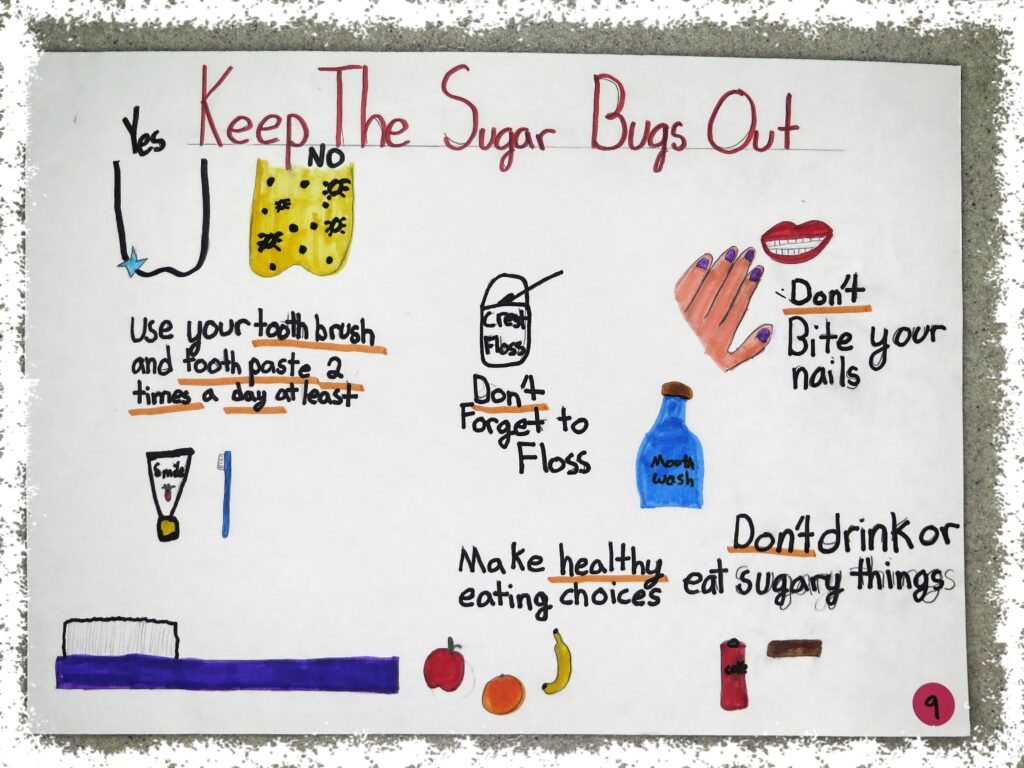 Keep The Sugar Bugs Out
Yes
NO
Use your tooth brush
and tooth paste 2
times a day at least
Smile
Crest
Floss
Don't
Forget to
Floss
Don't
Bite your
nails
Mouth
wash
Make healthy
eating choices
Don't drink or
eat sugary things
coke
9